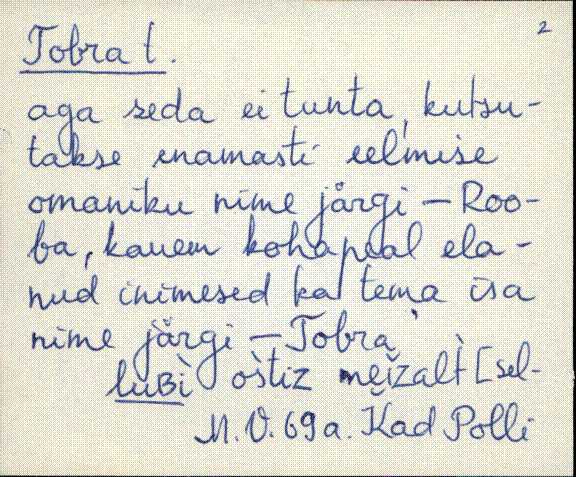 2
Tobra t.
aga seda ei tunta, kutsu-
takse enamasti eelmise
omaniku nime järgi – Roo-
ba, kauem kohapeal ela-
nud inimesed ka tema isa
nime järgi – Tobra
luʙì oštiz mẹìzalt̀ [sel-
M.V. 69 a. Kad Polli